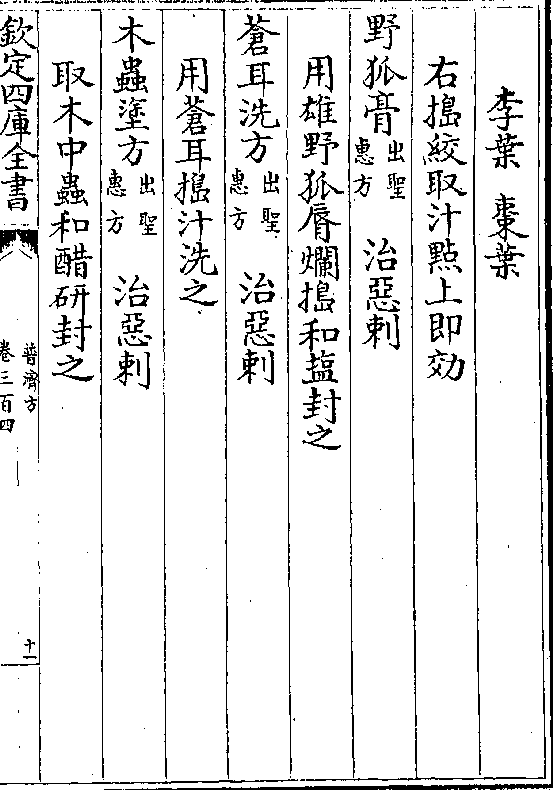 李葉　棗葉
右搗絞取汁㸃上即効
野狐膏出聖惠方　治惡刺
用雄野狐唇爛搗和塩封之
蒼耳洗方出聖惠方　治惡刺
用蒼耳搗汁洗之
木蟲塗方出聖惠方　治惡刺
取木中蟲和醋研封之
欽定四庫全書
普濟方
卷三百四
十一